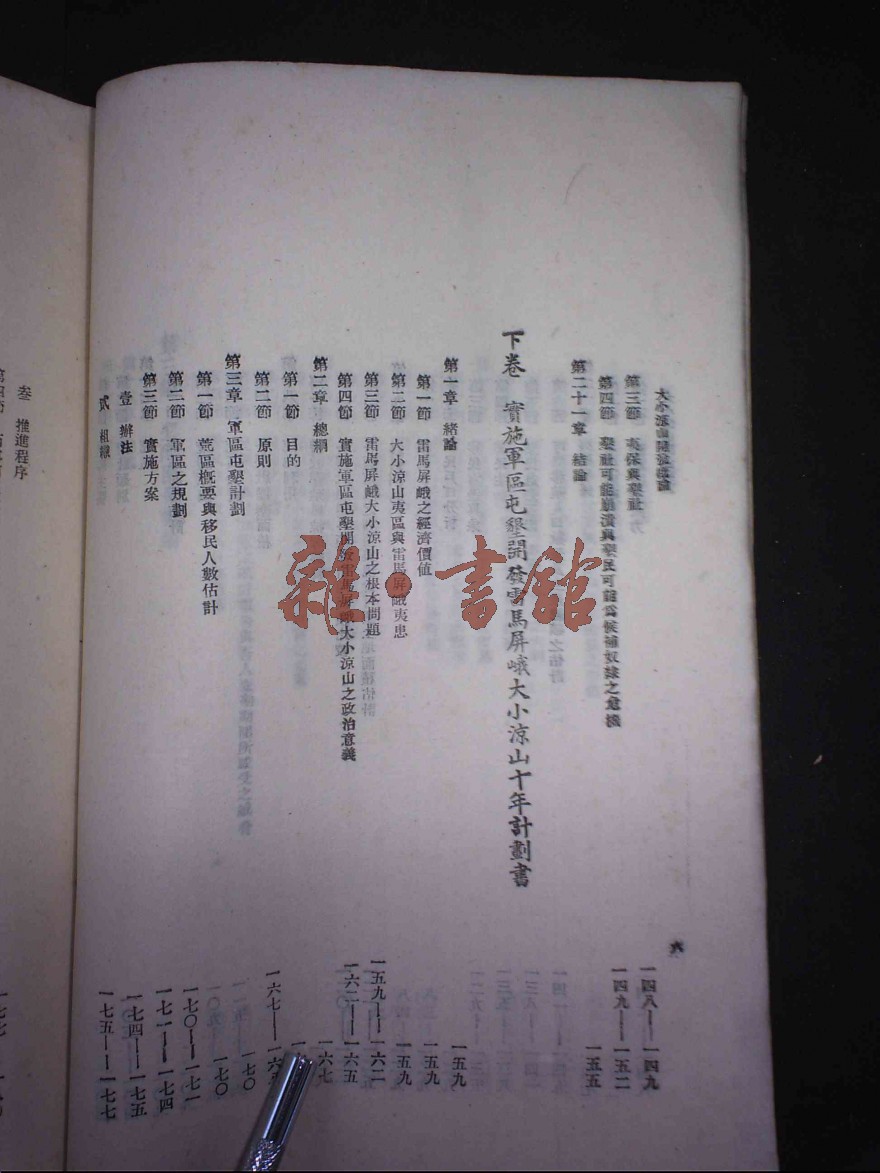 大小涼山開發概論
六
第三節 夷保與墾社 一四八——一四九
第四節 墾社可能崩潰與墾民可能爲候補奴隸之危機 一四九——一五二
第二十一章 結論 一五五
下卷 實施軍區屯墾開發雷馬屏峨大小涼山十年計劃書
第一章 緒論 一五九
第一節 雷馬屏峨之經濟價値 一五九
第二節 大小涼山夷區與雷馬屏峨夷患 一五九
第三節 雷馬屏峨大小涼山之根本問題 一五九——一六二
第四節 實施軍區屯墾開發雷馬屏峨大小涼山之政治意義 一六二——一六五
第二章 總綱 一六七
第一節 目的
第二節 原則 一六七——
第三章 軍區屯墾計劃 一七〇
第一節 荒區槪要與移民人數估計 一七〇——一七一
第二節 軍區之規劃 一七一——一七四
第三節 實施方案
壹 辦法 一七四——一七五
貳 組織 一七五——一七七
叁 推進程序
雜·書舘